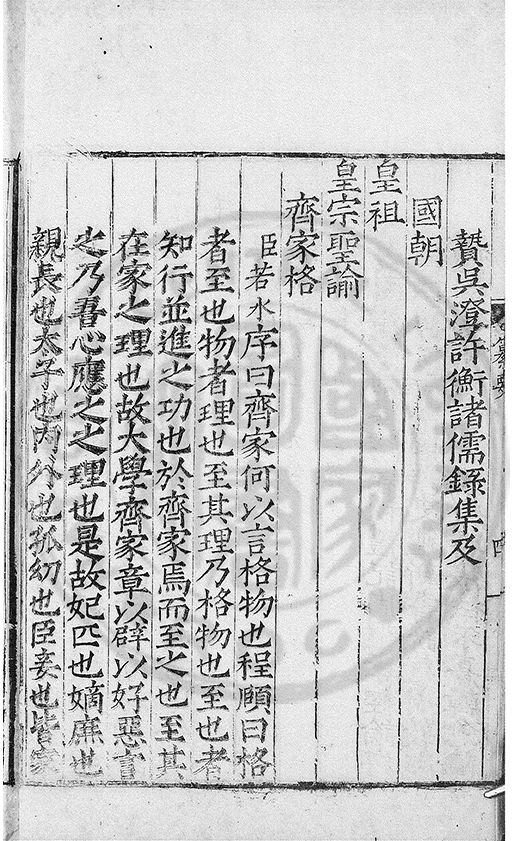 贊吳澄許衡諸儒錄集及
國朝
皇祖
皇宗聖諭
齊家格
臣若水序曰齊家何以言格物也程頤曰格
者至也物者理也至其理乃格物也至也者
知行並進之功也於齊家焉而至之也至其
在家之理也故大學齊家章以辟以好惡言
之乃吾心應之之理也是故妃匹也嫡庶也
親長也太子也內外也孤幼也臣妾也皆家